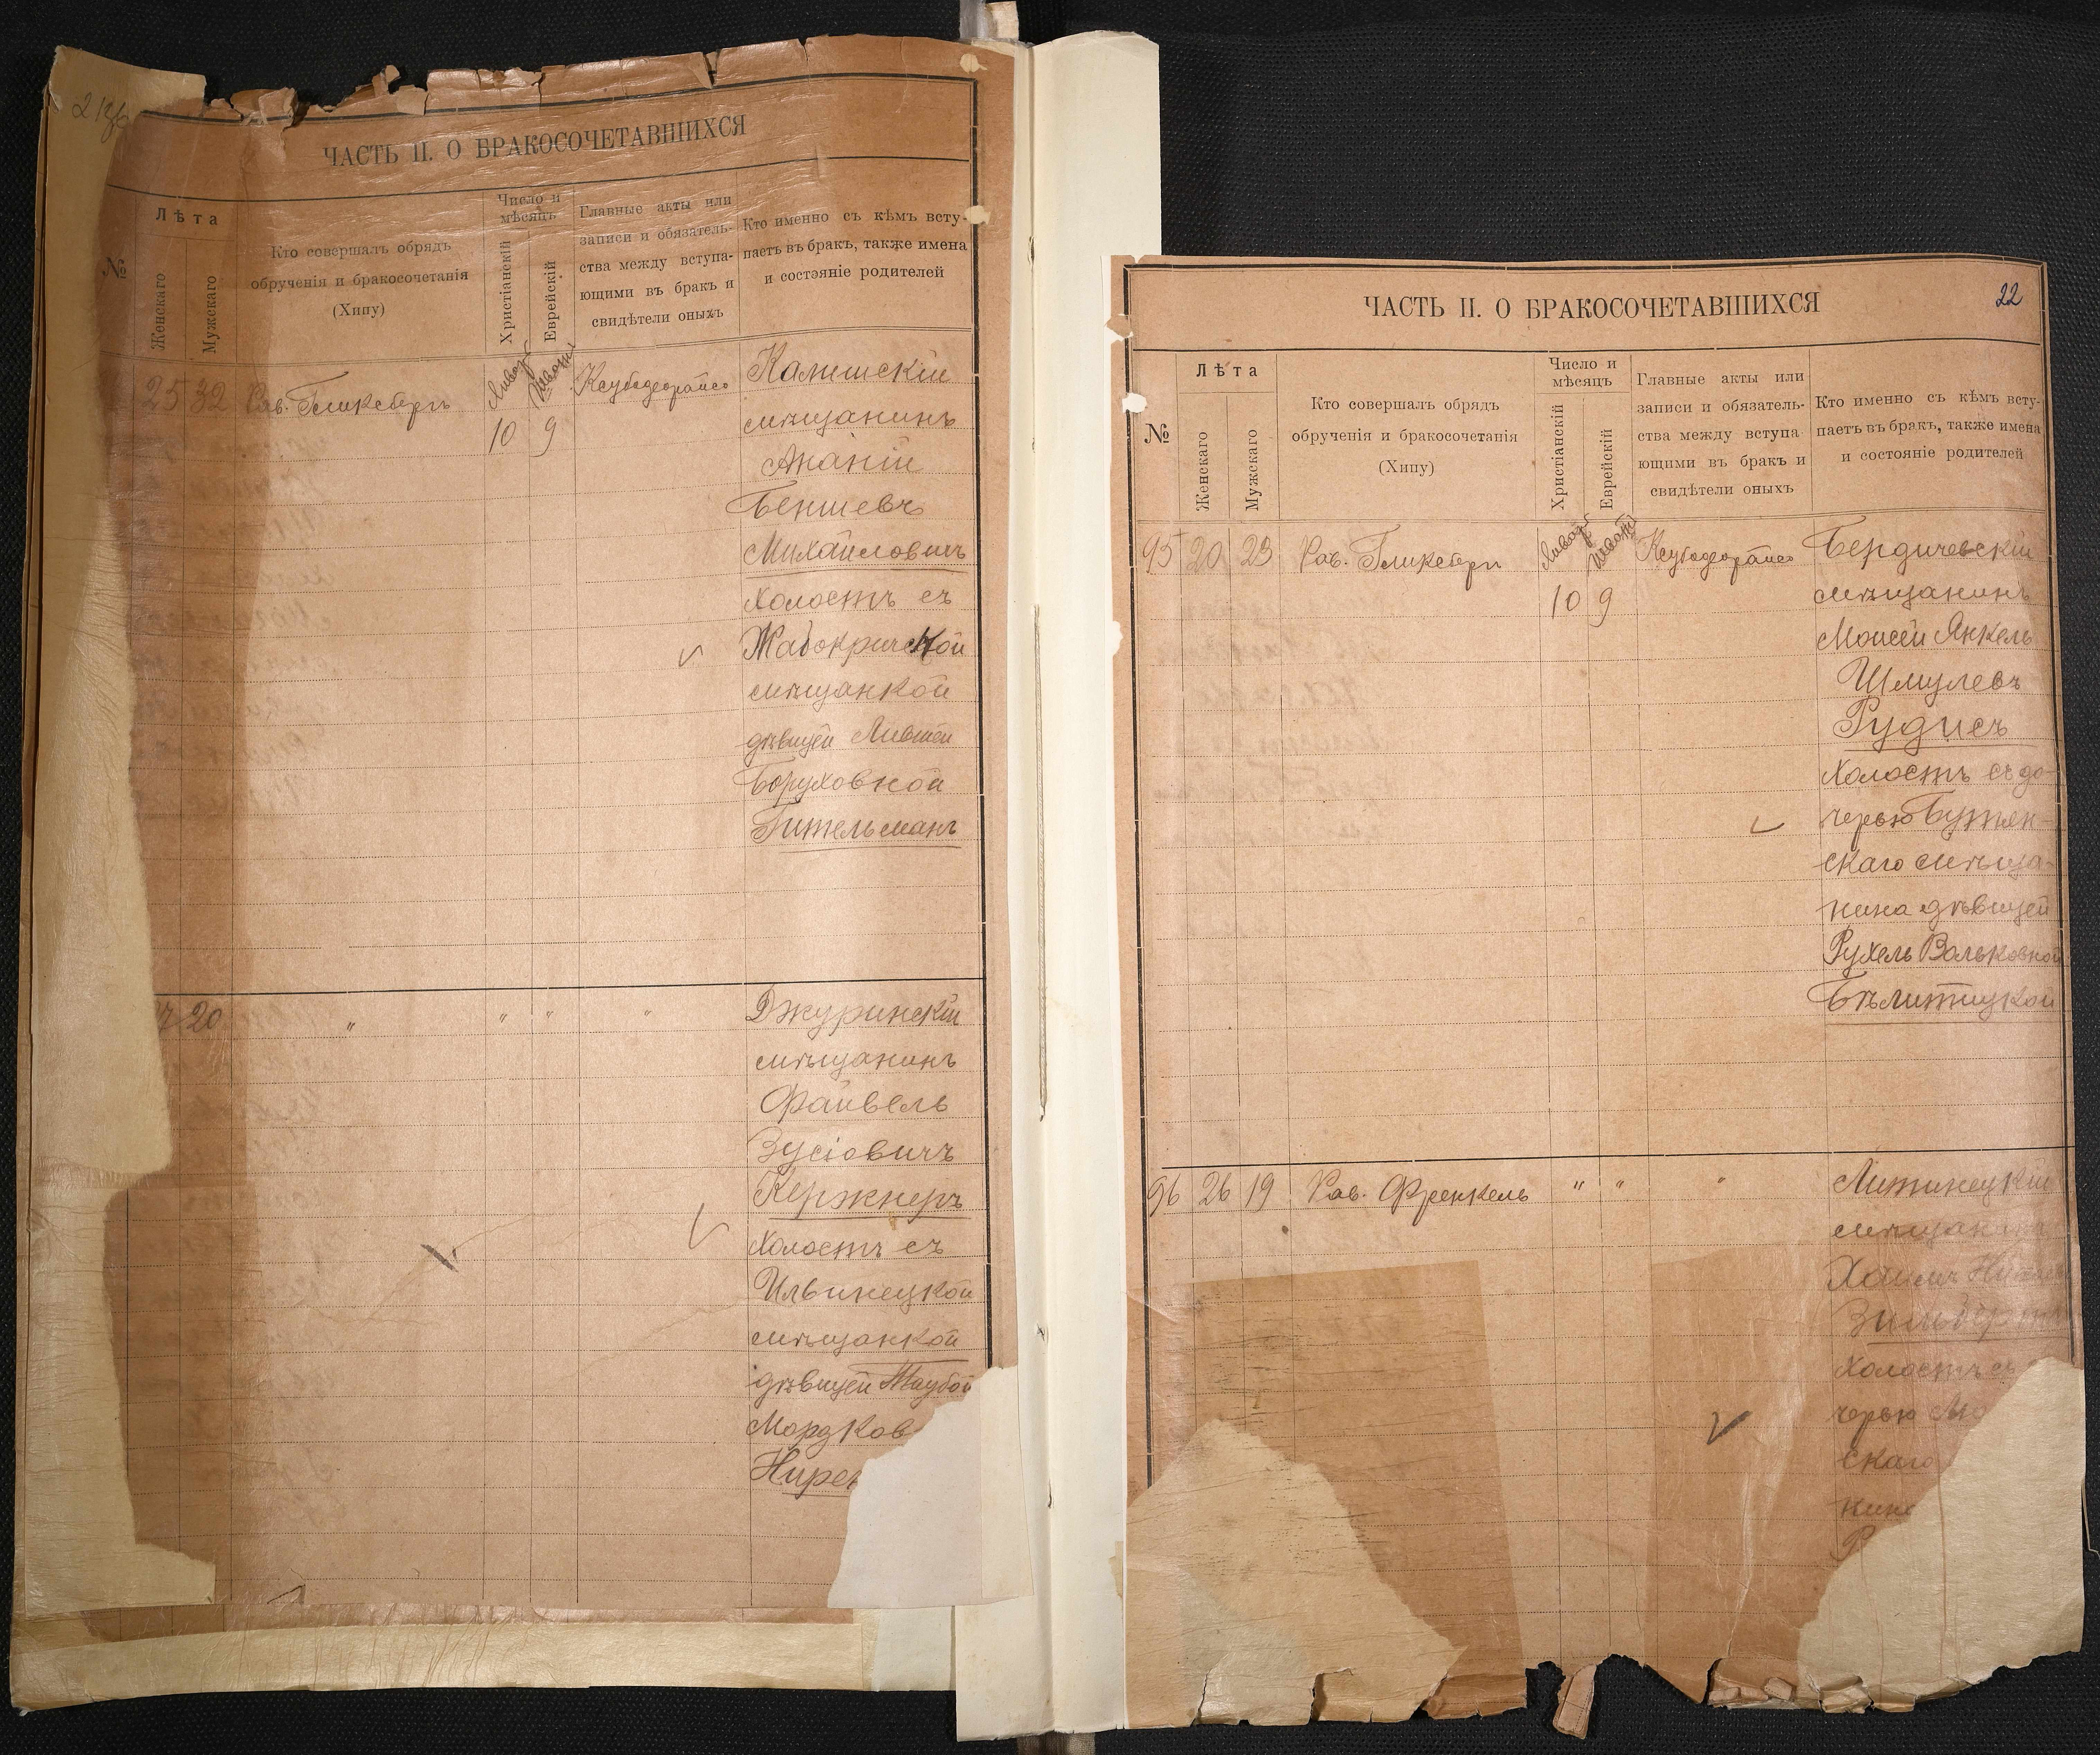 ЧАСТЬ II. О БРАКОСОЧЕТАВШИХСЯ
№
Лѣта
Женскаго
Мужскаго
Кто совершалъ обрядъ
обрученія и бракосочетанія
(Хипу)
Число и
мѣсяцъ
Христіанскій
Еврейскій
Главные акты или
записи и обязатель-
ства между вступа-
ющими въ бракъ и
свидѣтели оныхъ
Кто именно съ кѣмъ всту-
паетъ въ бракъ, также имена
и состэяніе родителей
25 32 Рав. Гликсбергъ
10 9
Калишскій
мѣщанинъ
Ананій
Беншевъ
Михайловичъ
холостъ съ
Жабокричской
мѣщанкой
дѣвицей Лившей
Боруховной
Гительманъ
20 " " " "
Джуринскій
мѣщанинъ
Файвель
Зусіовичъ
Кержнеръ
холостъ съ
Ильинецкой
мѣщанкой
дѣвицей Таубой
Мордков
Нирен
ЧАСТЬ II. О БРАКОСОЧЕТАВШИХСЯ
22
№
Лѣта
Женскаго
Мужскаго
Кто совершалъ обрядъ
обрученія и бракосочетанія
(Хипу)
Число и
мѣсяцъ
Христіанскій
Еврейскій
Главные акты или
записи и обязатель-
ства между вступа-
ющими въ бракъ и
свидѣтели оныхъ
Кто именно съ кѣмъ всту-
паетъ въ бракъ, также имена
и состояніе родителей
95 20 23 Рав. Гликсберг
10 9
Бердичевскій
мѣщанинъ
Моисей Янкель
Шмулевъ
Рудисъ
холостъ съ до-
черью Бутян-
скаго мѣща-
нина дѣвицей
Рухель Вольковной
Бѣлитицкой
96 26 19 Рав. Френкель " " "
Литинецкій
мѣщанинъ
Хаимъ
холостъ съ
черью
скаго
нина